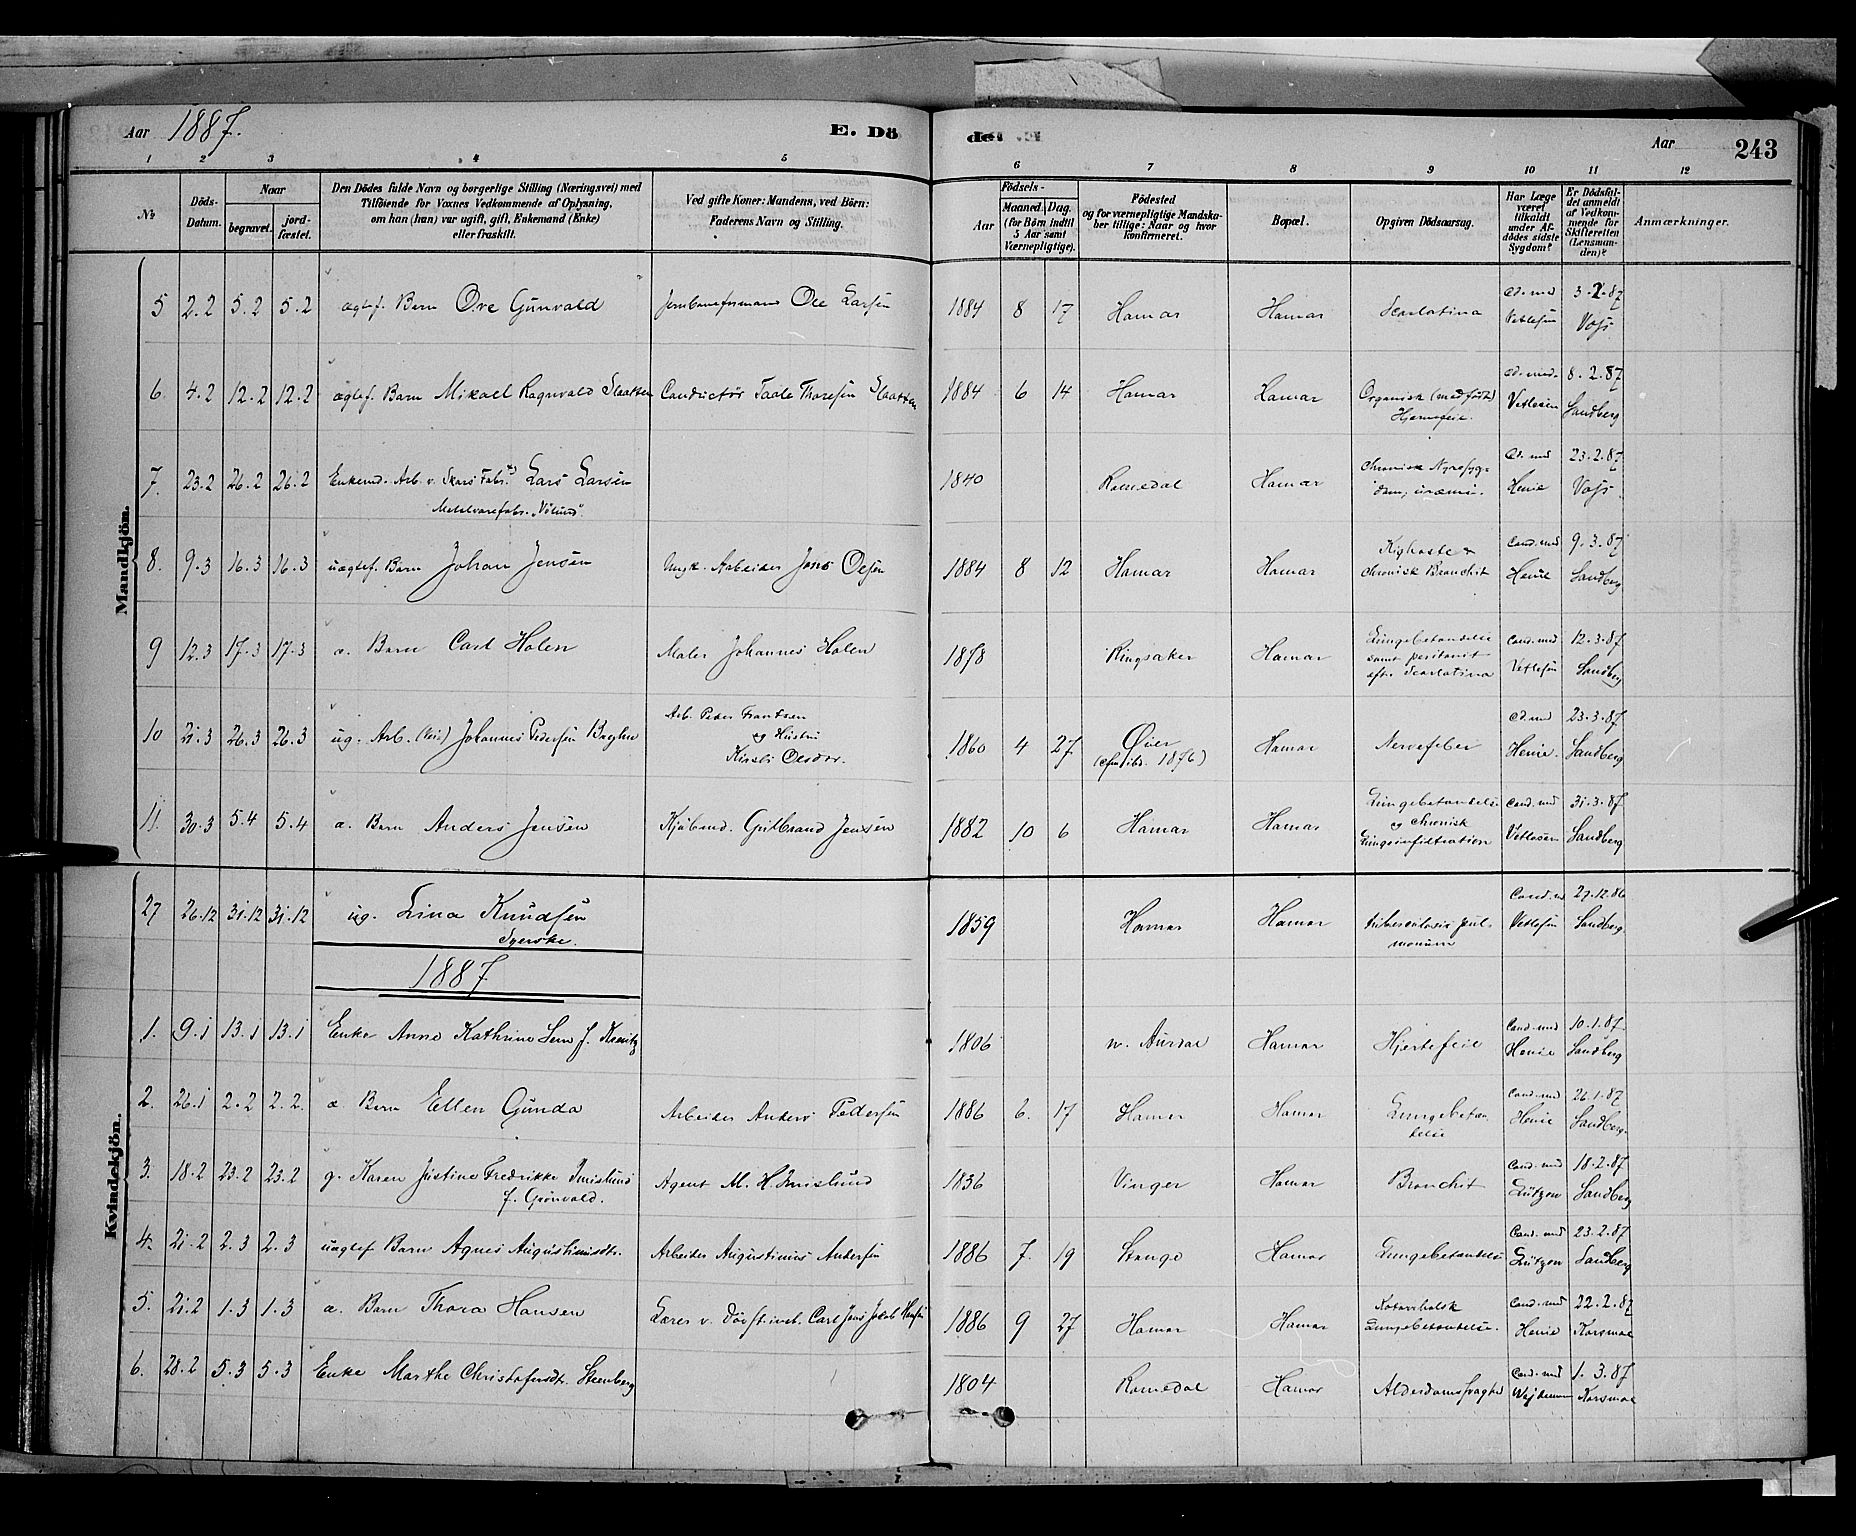 Aar 1887.
E. Dö
de
Aar
243
1 2 3 4 5 6 7 8 9 10 11 12
No
Döds-Datum.
Naar
begravet.
jord-fæstet.
Den Dödes fulde Navn og borgerlige Stilling (Næringsvei) med
Tilföiende for Voxnes Vedkommende af Oplysning,
om han (hun) var ugift, gift, Enkemand (Enke)
eller fraskilt.
Ved gifte Koner: Mandens, ved Börn:
Faderens Navn og Stilling.
Födsels-
Aar
Maaned.
Dag.
(for Börn indtil
5 Aar samt
Værnepligtige).
Födested
og for værnepligtige Mandska-
ber tillige: Naar og hvor
konfirmeret.
Bopæl.
Opgiven Dödsaarsag.
Har Læge
været
tilkaldt
under Af-
dödes sidste
Sygdom?
Er Dödsfal-
det anmeldt
af Vedkom-
mende for
Skifteretten
(Lensman-
den)?
Anmærkninger.
Mandkjön.
5 2.2 5.2 5.2 ægtef. Barn Ove Gunvald Jernbaneformand Ole Larsen 1884 8 17 Hamar Hamar Scarlatina Cd. med Vetlesen 3.2.87 Vojs
6. 4.2 12.2 12.2 ægtef. Barn Mikael Ragnvald Slaatten Conductör Taale Thoresen Slaatten 1884 6 14 Hamar Hamar Organisk (medfödt) Hjernefeil. Cd. med. Vetlesen 8.2.87 Sandberg
7. 23.2 26.2 26.2 Enkemd. Arb. v. Skars Fabr. Lars Larsen
Metalvarefabr. "Völund"
1840 Romedal Hamar Chronisk Nyresyg-
dom, uræmi. Cd. med Henie 23.2.87 Vojs
8. 9.3 16.3 16.3 uægtef. Barn Johan Jensen Ungk. Arbeider Jens Olsen 1884 8 12 Hamar Hamar Kighoste & chronisk Bronchit Cand. med Henie 9.3.87 Sandberg
9 12.3 17.3 17.3 æ. Barn Carl Holen Maler Johannes Holen 1878 Ringsaker Hamar Lungebetændelse
samt peritonit
eft. Scarlatina Cand. med Vetlesen 12.3.87 Sandberg
10 21.3 26.3 26.3 ug. Arb. Johannes Pedersen Arb. Peder Frantsen
og Hustru
Kirsti Olsdtr. 1860 4 27 Öier 1876) Hamar Nervefeber Cd. med Henie. 23.3.87 Sandberg
11. 30.3 5.4 5.4 æ. Barn Anders Jensen Kjöbmd. Gulbrand Jensen 1882 10 6 Hamar Hamar Lungebetændelse
og chronisk
Lungeinfiltration Cand. med Vetlesen 31.3.87 Sandberg
Kvindekjön.
27 26.12 31.12 31.12 ug. Lina Knudsen
Syerske. 1859 Hamar Hamar tuberculosis pul-
monum Cand. med Vetlesen 27.12.86 Sandberg
1887
1. 9.1 13.1 13.1 Enke Anne Kathrine f. 1806 n. Aurdal Hamar Hjertefeil Cand. med Henie 10.1.87 Sandberg
2. 26.1 2.2 2.2. æ. Barn Ellen Gunda Arbeider Anders Pedersen 1886 6. 17 Hamar Hamar Lungebetæn-
delse Cand. med Henie 26.1.87 Sandberg.
3. 18.2 23.2 23.2 g. Karen Justine Fredrikke Imislund
f. Grönvold. Agent M. H. Imislund 1836 Vinger Hamar Bronchit Cand. med Lützow 18.2.87 Sandberg
4. 21.2 2.3 2.3 uægtef. Barn Agnes Augustinusdtr. Arbeider Augustinus Andersen 1886 7. 19 Stange Hamar Lungebetændelse Cand. med Lützow 23.2.87 Sandberg
5. 21.2 1.3 1.3 æ. Barn Thora Hansen Lærer v. Dövst.inst. Carl Jens Jakob Hansen 1886 9 27 Hamar Hamar Katarrhalsk
Lungebetændelse. Cand. med Henie 22.2.87 Korsmoe
6. 28.2 5.3 5.3 Enke Marthe Christofersdt. Steenberg 1804 Romedal Hamar Alderdomssvaghed Cand. med 1.3.87 Korsmoe